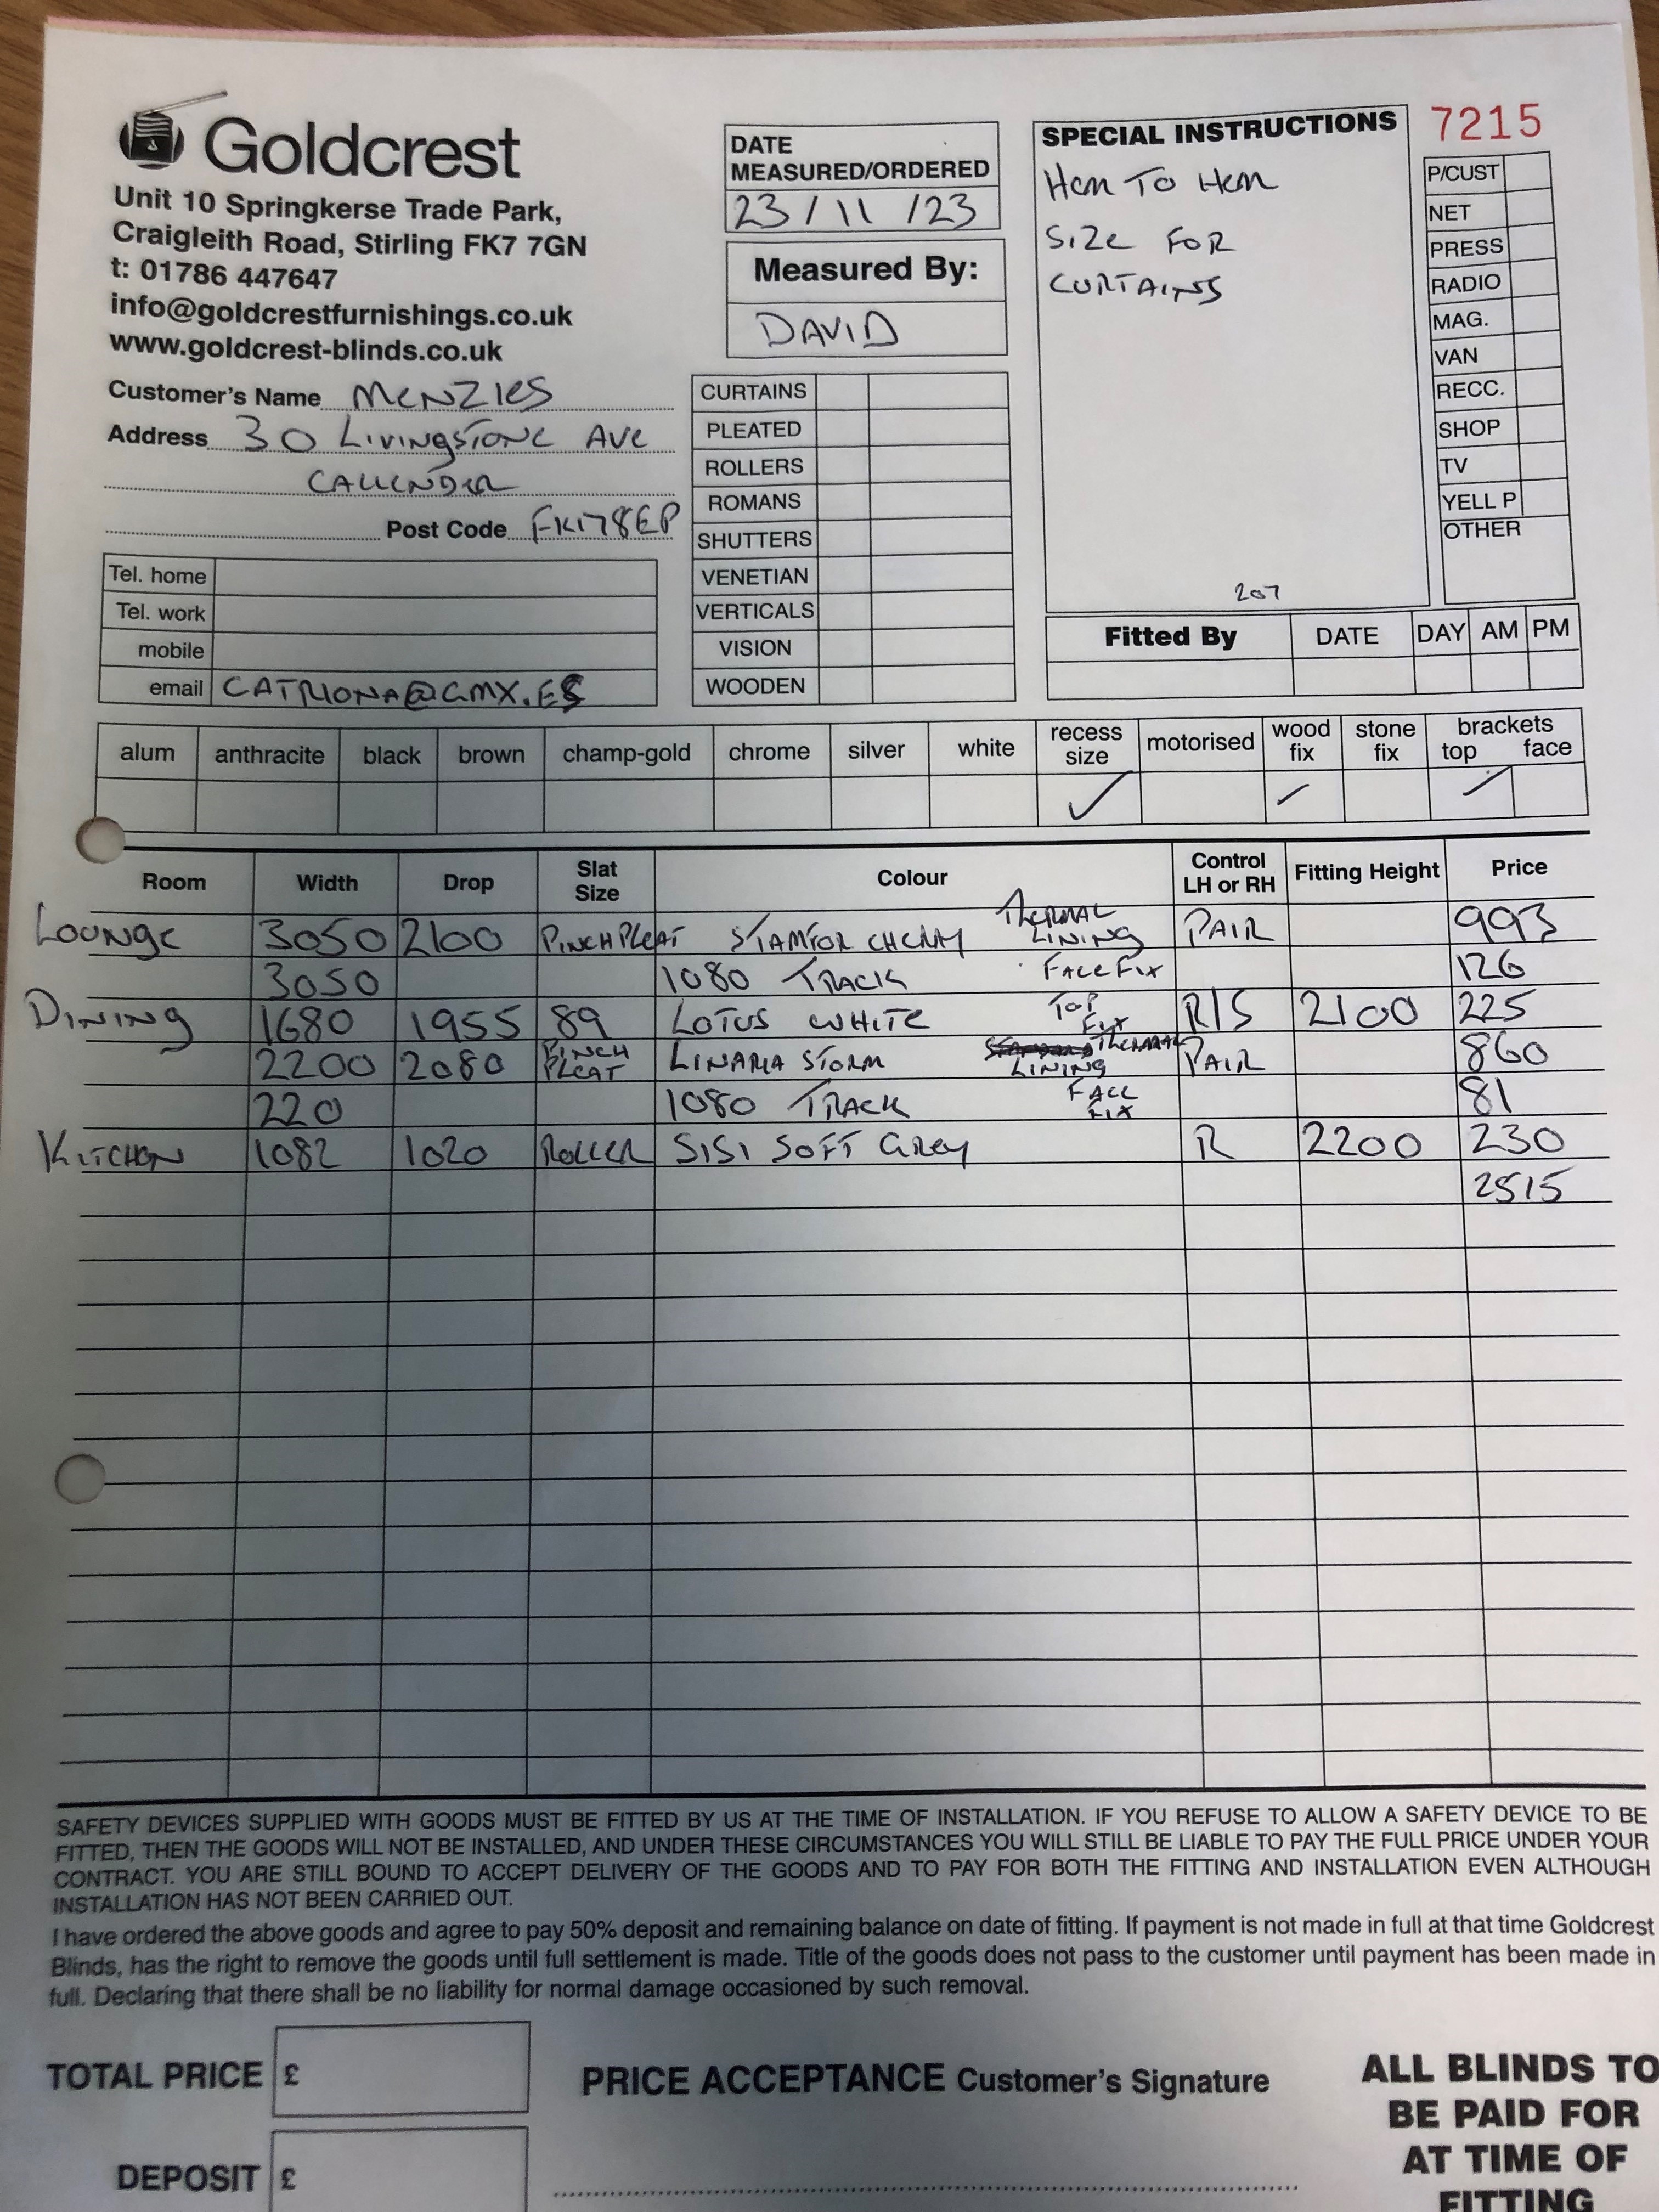 Goldcrest
Unit 10 Springkerse Trade Park,
Craigleith Road, Stirling FK7 7GN
t: 01786 447647
info@goldcrestfurnishings.co.uk
www.goldcrest-blinds.co.uk
Customer's Name MENZIES
Address 30 LIVINGSTONE AVE
CALLENDER
Post Code FK178EP
Tel. home
Tel. work
mobile
email CATRIONA@GMX.ES
DATE
MEASURED/ORDERED
23/11/23
Measured By:
DAVID
CURTAINS
PLEATED
ROLLERS
ROMANS
SHUTTERS
VENETIAN
VERTICALS
VISION
WOODEN
SPECIAL INSTRUCTIONS
HEM TO HEM
SIZE FOR
CURTAINS
207
7215
P/CUST
NET
PRESS
RADIO
MAG.
VAN
RECC.
SHOP
TV
YELL P
OTHER
Fitted By DATE DAY AM PM
alum anthracite black brown champ-gold chrome silver white recess size motorised wood fix stone fix brackets top face
Room Width Drop Slat Size Colour Control LH or RH Fitting Height Price
LOUNGE 3050 2100 PINCH PLEAT STAMFOR CHERRY THERMAL LINING PAIR 993
3050 1080 TRACK FACE FIX 126
DINING 1680 1955 89 LOTUS WHITE TOP FIX R/S 2100 225
2200 2080 PINCH PLEAT LINARIA STORM THERMAL LINING PAIR 860
220 1080 TRACK FACE FIX 81
KITCHEN 1082 1020 ROLLER SISI SOFT GREY R 2200 230
2515
SAFETY DEVICES SUPPLIED WITH GOODS MUST BE FITTED BY US AT THE TIME OF INSTALLATION. IF YOU REFUSE TO ALLOW A SAFETY DEVICE TO BE
FITTED, THEN THE GOODS WILL NOT BE INSTALLED, AND UNDER THESE CIRCUMSTANCES YOU WILL STILL BE LIABLE TO PAY THE FULL PRICE UNDER YOUR
CONTRACT. YOU ARE STILL BOUND TO ACCEPT DELIVERY OF THE GOODS AND TO PAY FOR BOTH THE FITTING AND INSTALLATION EVEN ALTHOUGH
INSTALLATION HAS NOT BEEN CARRIED OUT.
I have ordered the above goods and agree to pay 50% deposit and remaining balance on date of fitting. If payment is not made in full at that time Goldcrest
Blinds, has the right to remove the goods until full settlement is made. Title of the goods does not pass to the customer until payment has been made in
full. Declaring that there shall be no liability for normal damage occasioned by such removal.
TOTAL PRICE £
DEPOSIT £
PRICE ACCEPTANCE Customer's Signature
ALL BLINDS TO
BE PAID FOR
AT TIME OF
FITTING